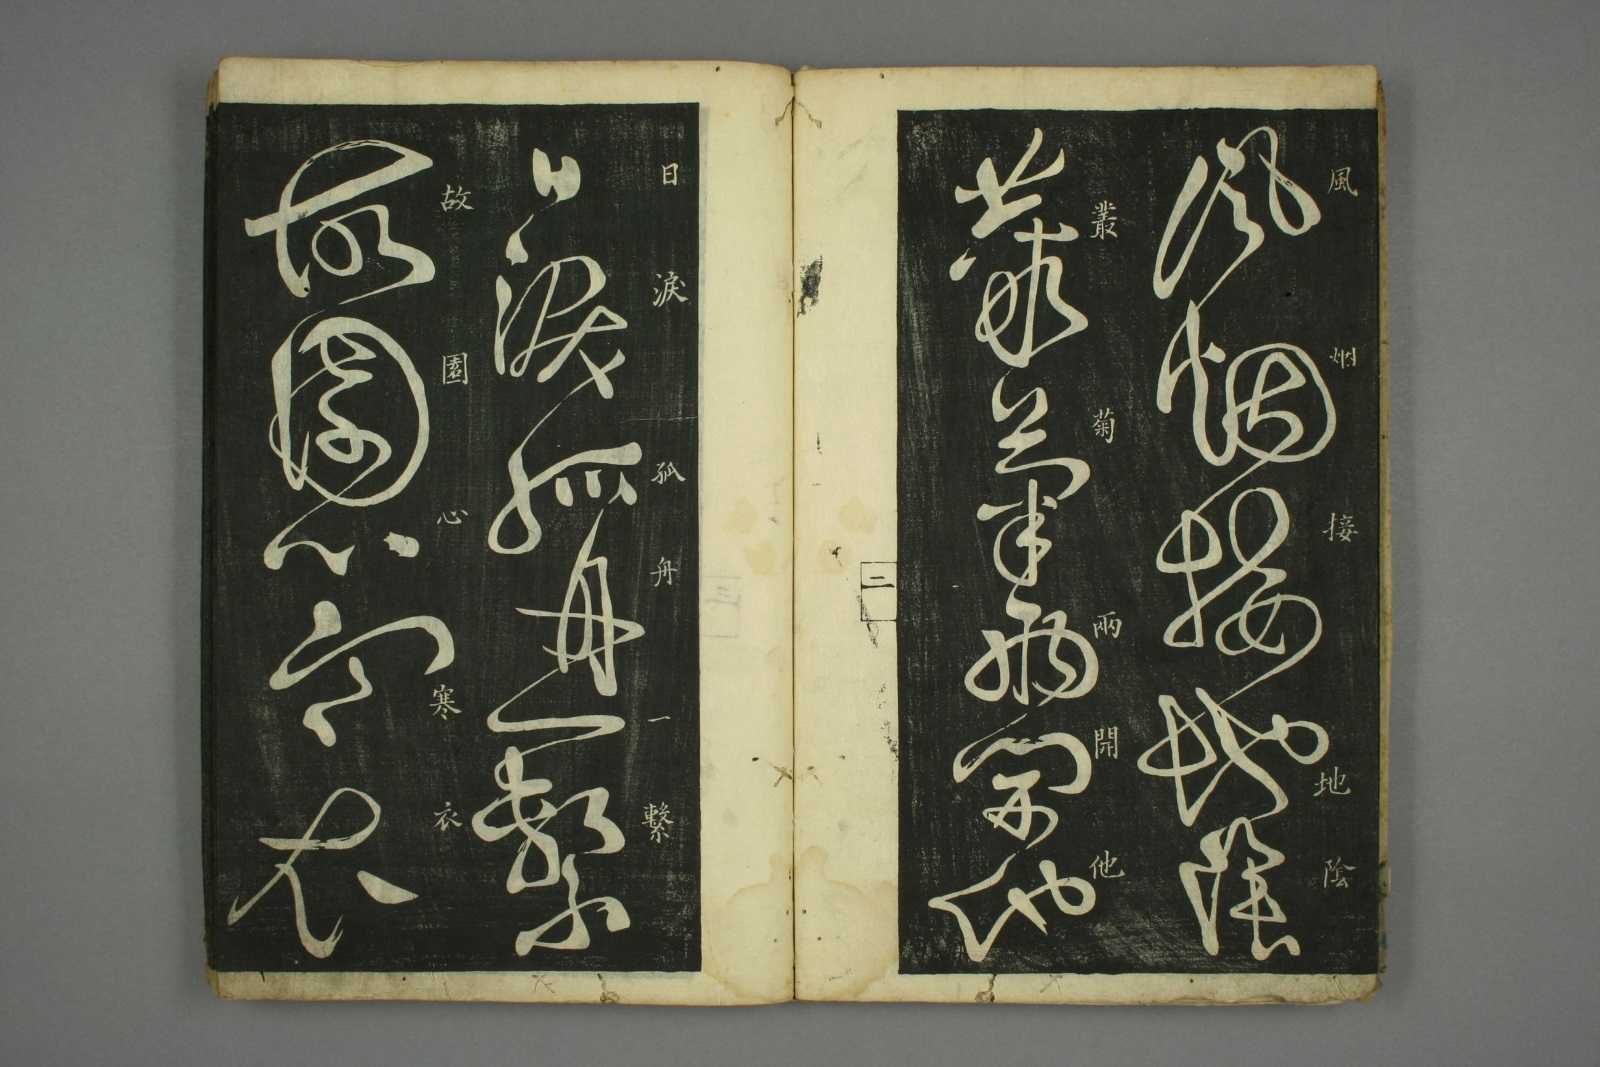 風烟接地陰
叢菊兩開他
二
日淚孤舟一繫
故園心寒衣